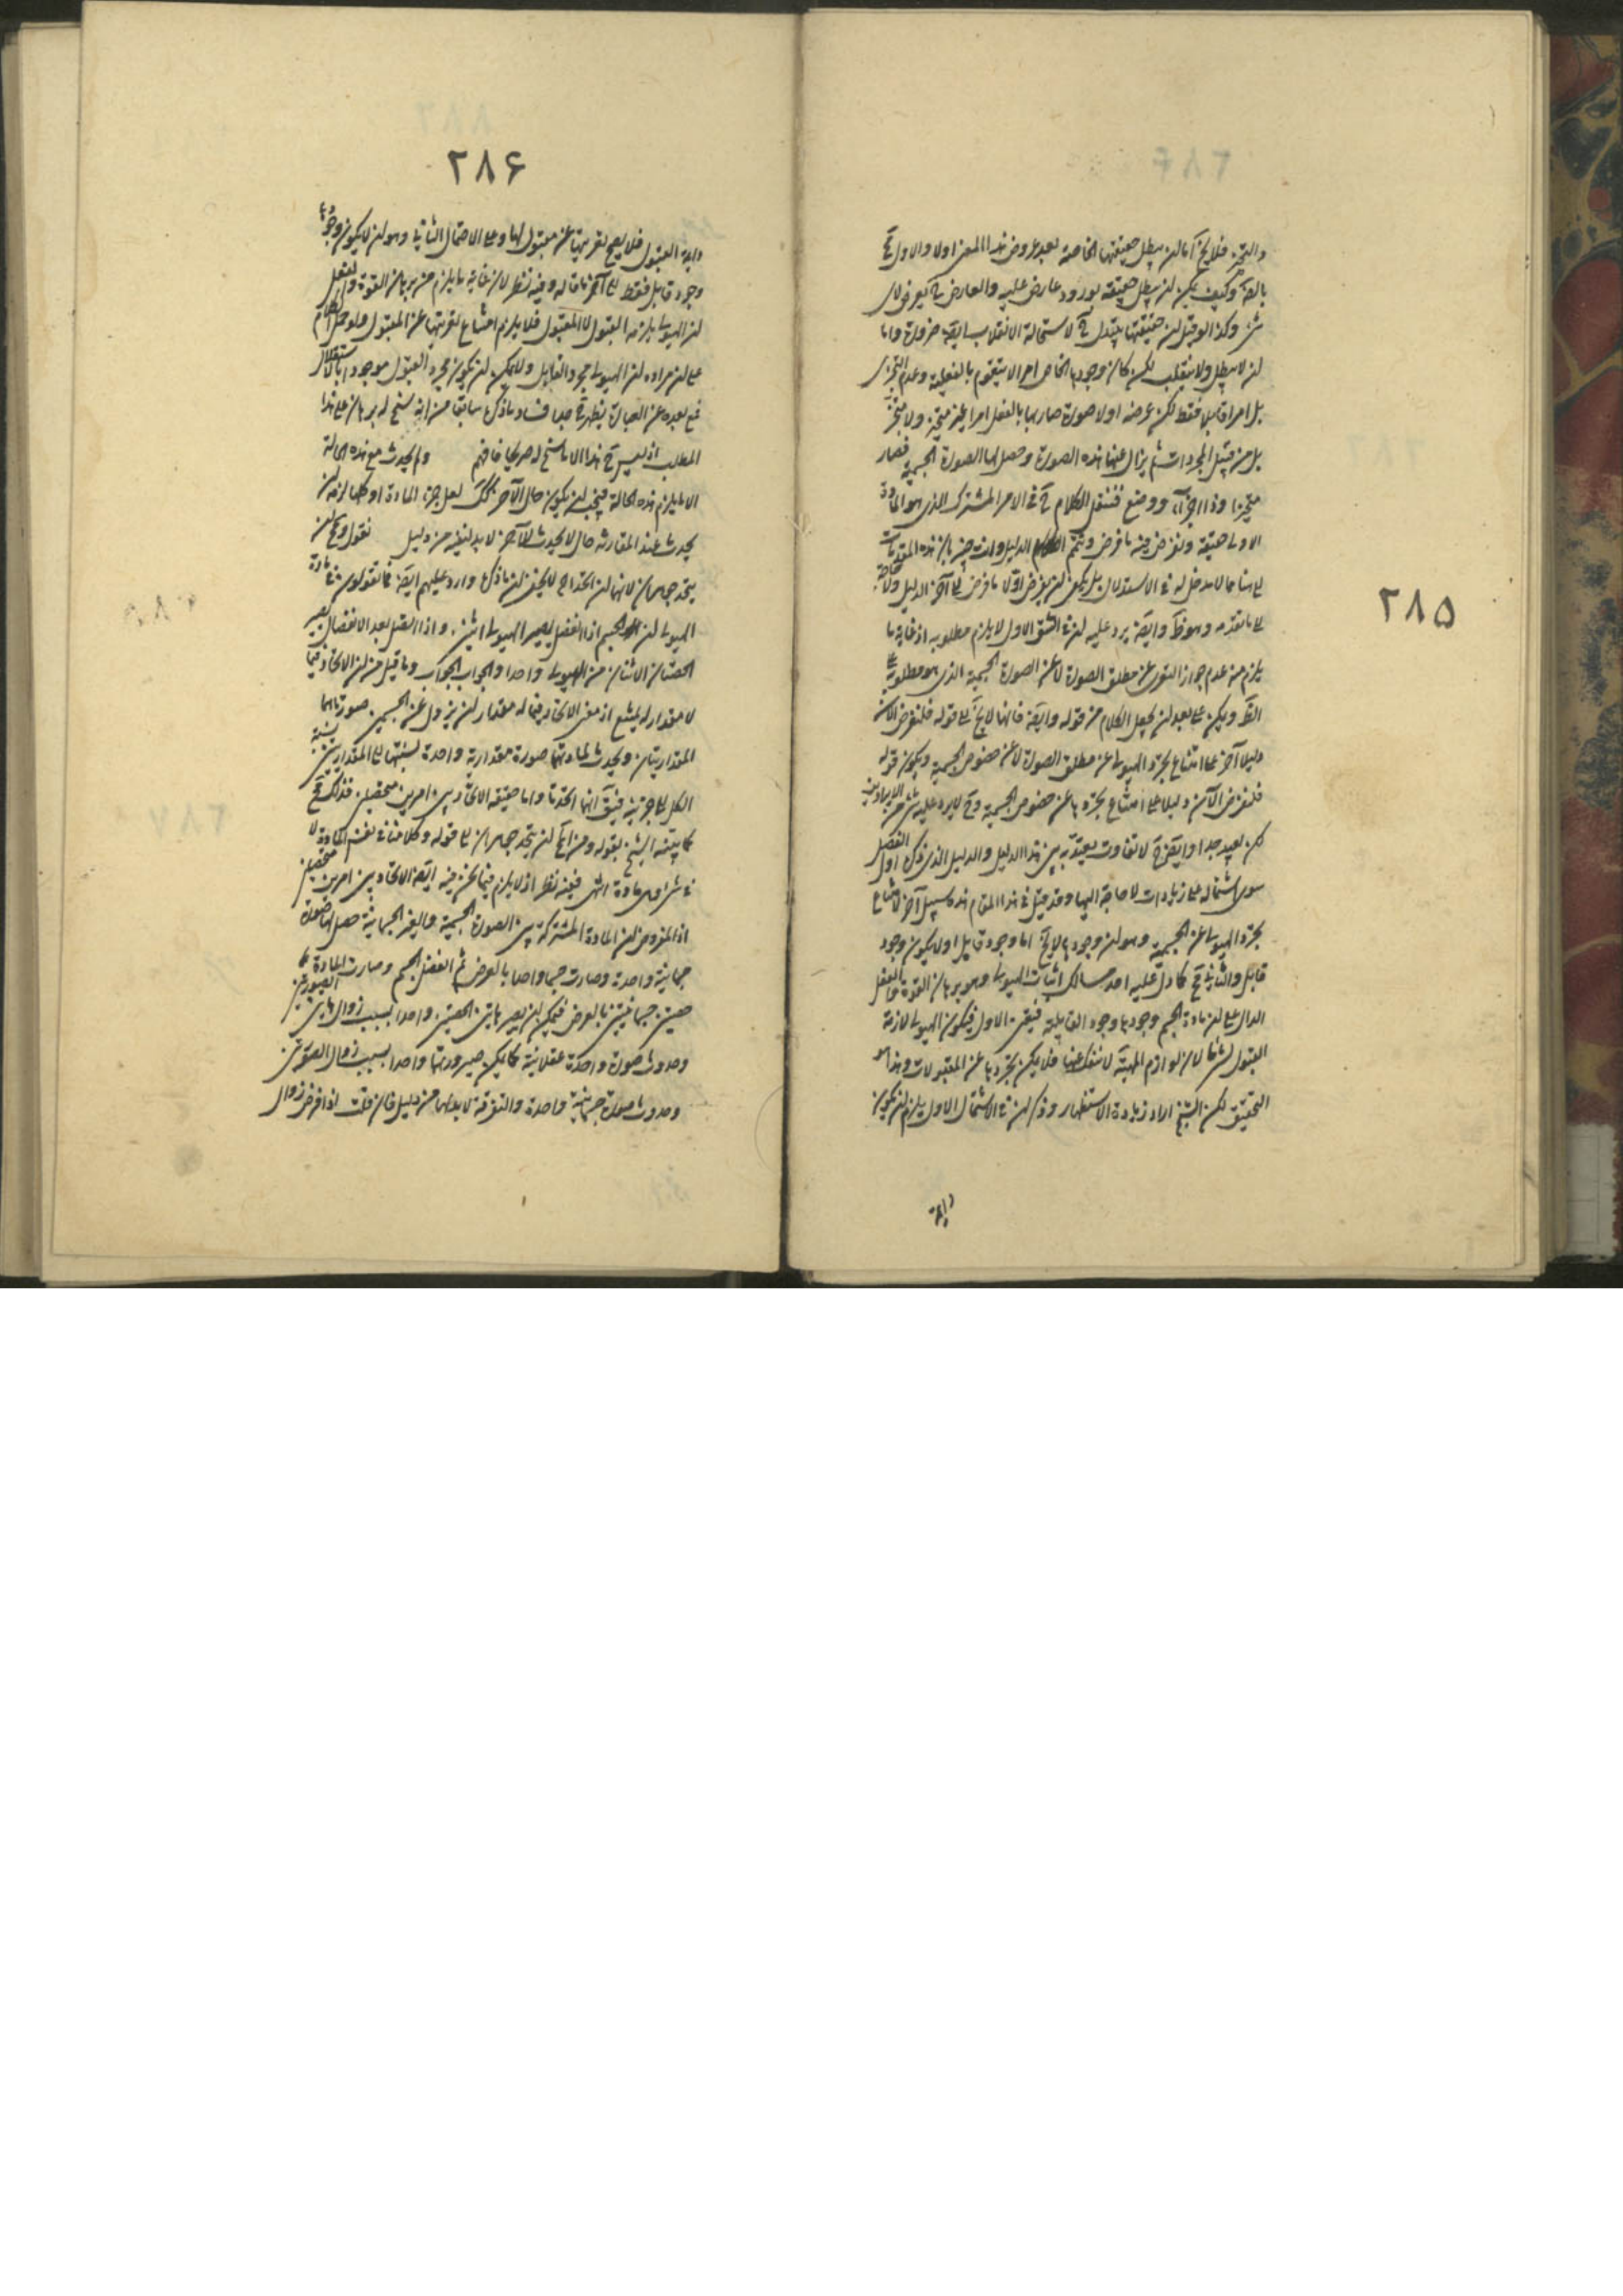 ٢٨٥
والتجزى فلا يخ اما لن يبطل حقيقتها الخاصة بعد عروض هذا المعنى اولا والاول مح
بالضرورة وكيف يمكن لن يبطل حقيقته بورود عارض عليه والعارض
وكذا لو قيل لن حقيقتها يتبدل لاستحالة الانقلاب ايضا ضرورة واما
لن لا يبطل ولا ينقلب لكن كان وجودها الخاص امرا لا يتقوم بالفعلية وعدم التجزى
بل امرا قابلا فقط لكن عرضه اولا صورة صار بها بالفعل امرا غير متجز ولا متحيز
بل من قبيل المجردات ثم يزال عنها هذه الصورة وحصل لها الصورة الجسمية فصار
متحيزا وذا اجزاء ووضع فننقل الكلام الى الامر المشترك الذى هو المادة
الاولى حقيقة ولنفرض فيه ما فرض ويتم الدليل وانت خبير بان هذه المقدمات
الى هنا مما لا مدخل له فى الاستدلال بل يكفى لن يفرض اولا ما فرض الى آخر الدليل ولا حاجة
الى ما تقدم وهو ظ وايضا يرد عليه لن فى الشق الاول لا يلزم مطلوبه اذ غاية ما
يلزم منه عدم جواز التعرى عن مطلق الصورة لا عن الصورة الجسمية الذى هو مطلوب
ويمكن على بعد لن يجعل الكلام من قوله وايضا فانها لا يخ الى قوله فلنفرض الآن
دليلا آخر على امتناع تجرد الهيولى عن مطلق الصورة لا عن خصوص الجسمية ويكون قوله
فلنفرض الآن دليلا على امتناع تجردها عن خصوص الجسمية وح لا يرد عليه شئ من الايرادين
لكن بعيد جدا وايضا ح لا تفاوت يعتد به بين هذا الدليل والدليل الذى ذكر اول الفصل
سوى اشتماله على زيادات لا حاجة اليها وقد قيل فى هذا المقام هذه سبيل آخر لامتناع
تجرد الهيولى عن الجسمية وهو لن وجودها لا يخ اما وجود قابل اولا يكون وجود
قابل والثانى مح كما دل عليه احد مسالك اثبات الهيولى وهو برهان القوة والفعل
الدال على لن مادة الجسم وجودها وجود القابلية فبقى الاول فيكون الهيولى لازمة
القبول لشئ ما لان لوازم المهية لا تنفك عنها فلا يمكن تجردها عن المقبولات وهذا هو
التحقيق لكن الشيخ اراد زيادة الاستظهار وذكر لن فى الاحتمال الاول يلزم لن يكون
دايمة
٢٨۶
دايمة القبول فلا يصح تعريتها عن مقبول لها وعلى الاحتمال الثانى وهو لن لا يكون وجودها
وجود قابل فقط الى آخر ما قاله وفيه نظر لان غاية ما يلزم من برهان القوة والفعل
لن الهيولى يلزمه القبول لا المقبول فلا يلزم امتناع تعريتها عن المقبول ولو حمل الكلام
على لن مراده لن الهيولى مجرد القابل ولا يمكن لن يكون مجرد القبول موجودا بالاستقلال
فمع بعده عن العبارة يظهر ح فساد ما ذكره سابقا من انه سنح له برهان على هذا
المطلب اذ ليس ح هذا الا ما سنح له صريحا فافهم ولم يحدث مع هذه الحالة
الا ما يلزم هذه الحالة فيجب لن يكون حال الآخر كذلك لعل جزء المادة او كلها لزمه لن
يحدث عند المقارنة حال لا يحدث للآخر لا بد لنفيه من دليل نقول ومح لن
يتحد جوهران لانهما لن اتحدا لا يخفى لن ما ذكره وارد عليهم ايضا فما تقولون فى مادة
الهيولى لن الجسم اذا انفصل يصير الهيولى اثنين واذا اتصل بعد الانفصال يصير
الحصتان الاثنتان من الهيولى واحدا والجواب الجواب وما قيل من لن الاتحاد فيما
لا مقدار له يمتنع اذ معنى الاتحاد فيما له مقدار لن يزول عن الجسمين صورتاهما
المقداريتان ويحدث لمادتهما صورة مقدارية واحدة نسبتها الى المقدارين نسبة
الكل الى جزئيه فيق انهما اتحدتا واما حقيقة الاتحاد بين امرين متحصلين فذلك مح
كما بينه الشيخ بقوله ومن المح لن يتحد جوهران الى قوله وكلامنا فى نفس المادة لا
فى شئ ذى مادة انتهى ففيه نظر اذ لا يلزم فيما نحن فيه ايضا الاتحاد بين امرين متحصلين
اذ المفروض لن المادة المشتركة بين الصورة الجسمية والغير الجسمانية حصل لها صورة
جسمانية واحدة وصارت جسما واحدا بالعرض ثم انفصل الجسم وصارت المادة كما
حصتين جسمانيتين بالعرض فيمكن لن يصير هاتين الحصتين واحدا بسبب زوال هاتين الصورتين
وحدوث صورة واحدة عقلانية كما يمكن صيرورتهما واحدا بسبب زوال الصورتين
وحدوث صورة جسمانية واحدة والتفرقة لا بد لها من دليل فان قلت اذا فرض زوال